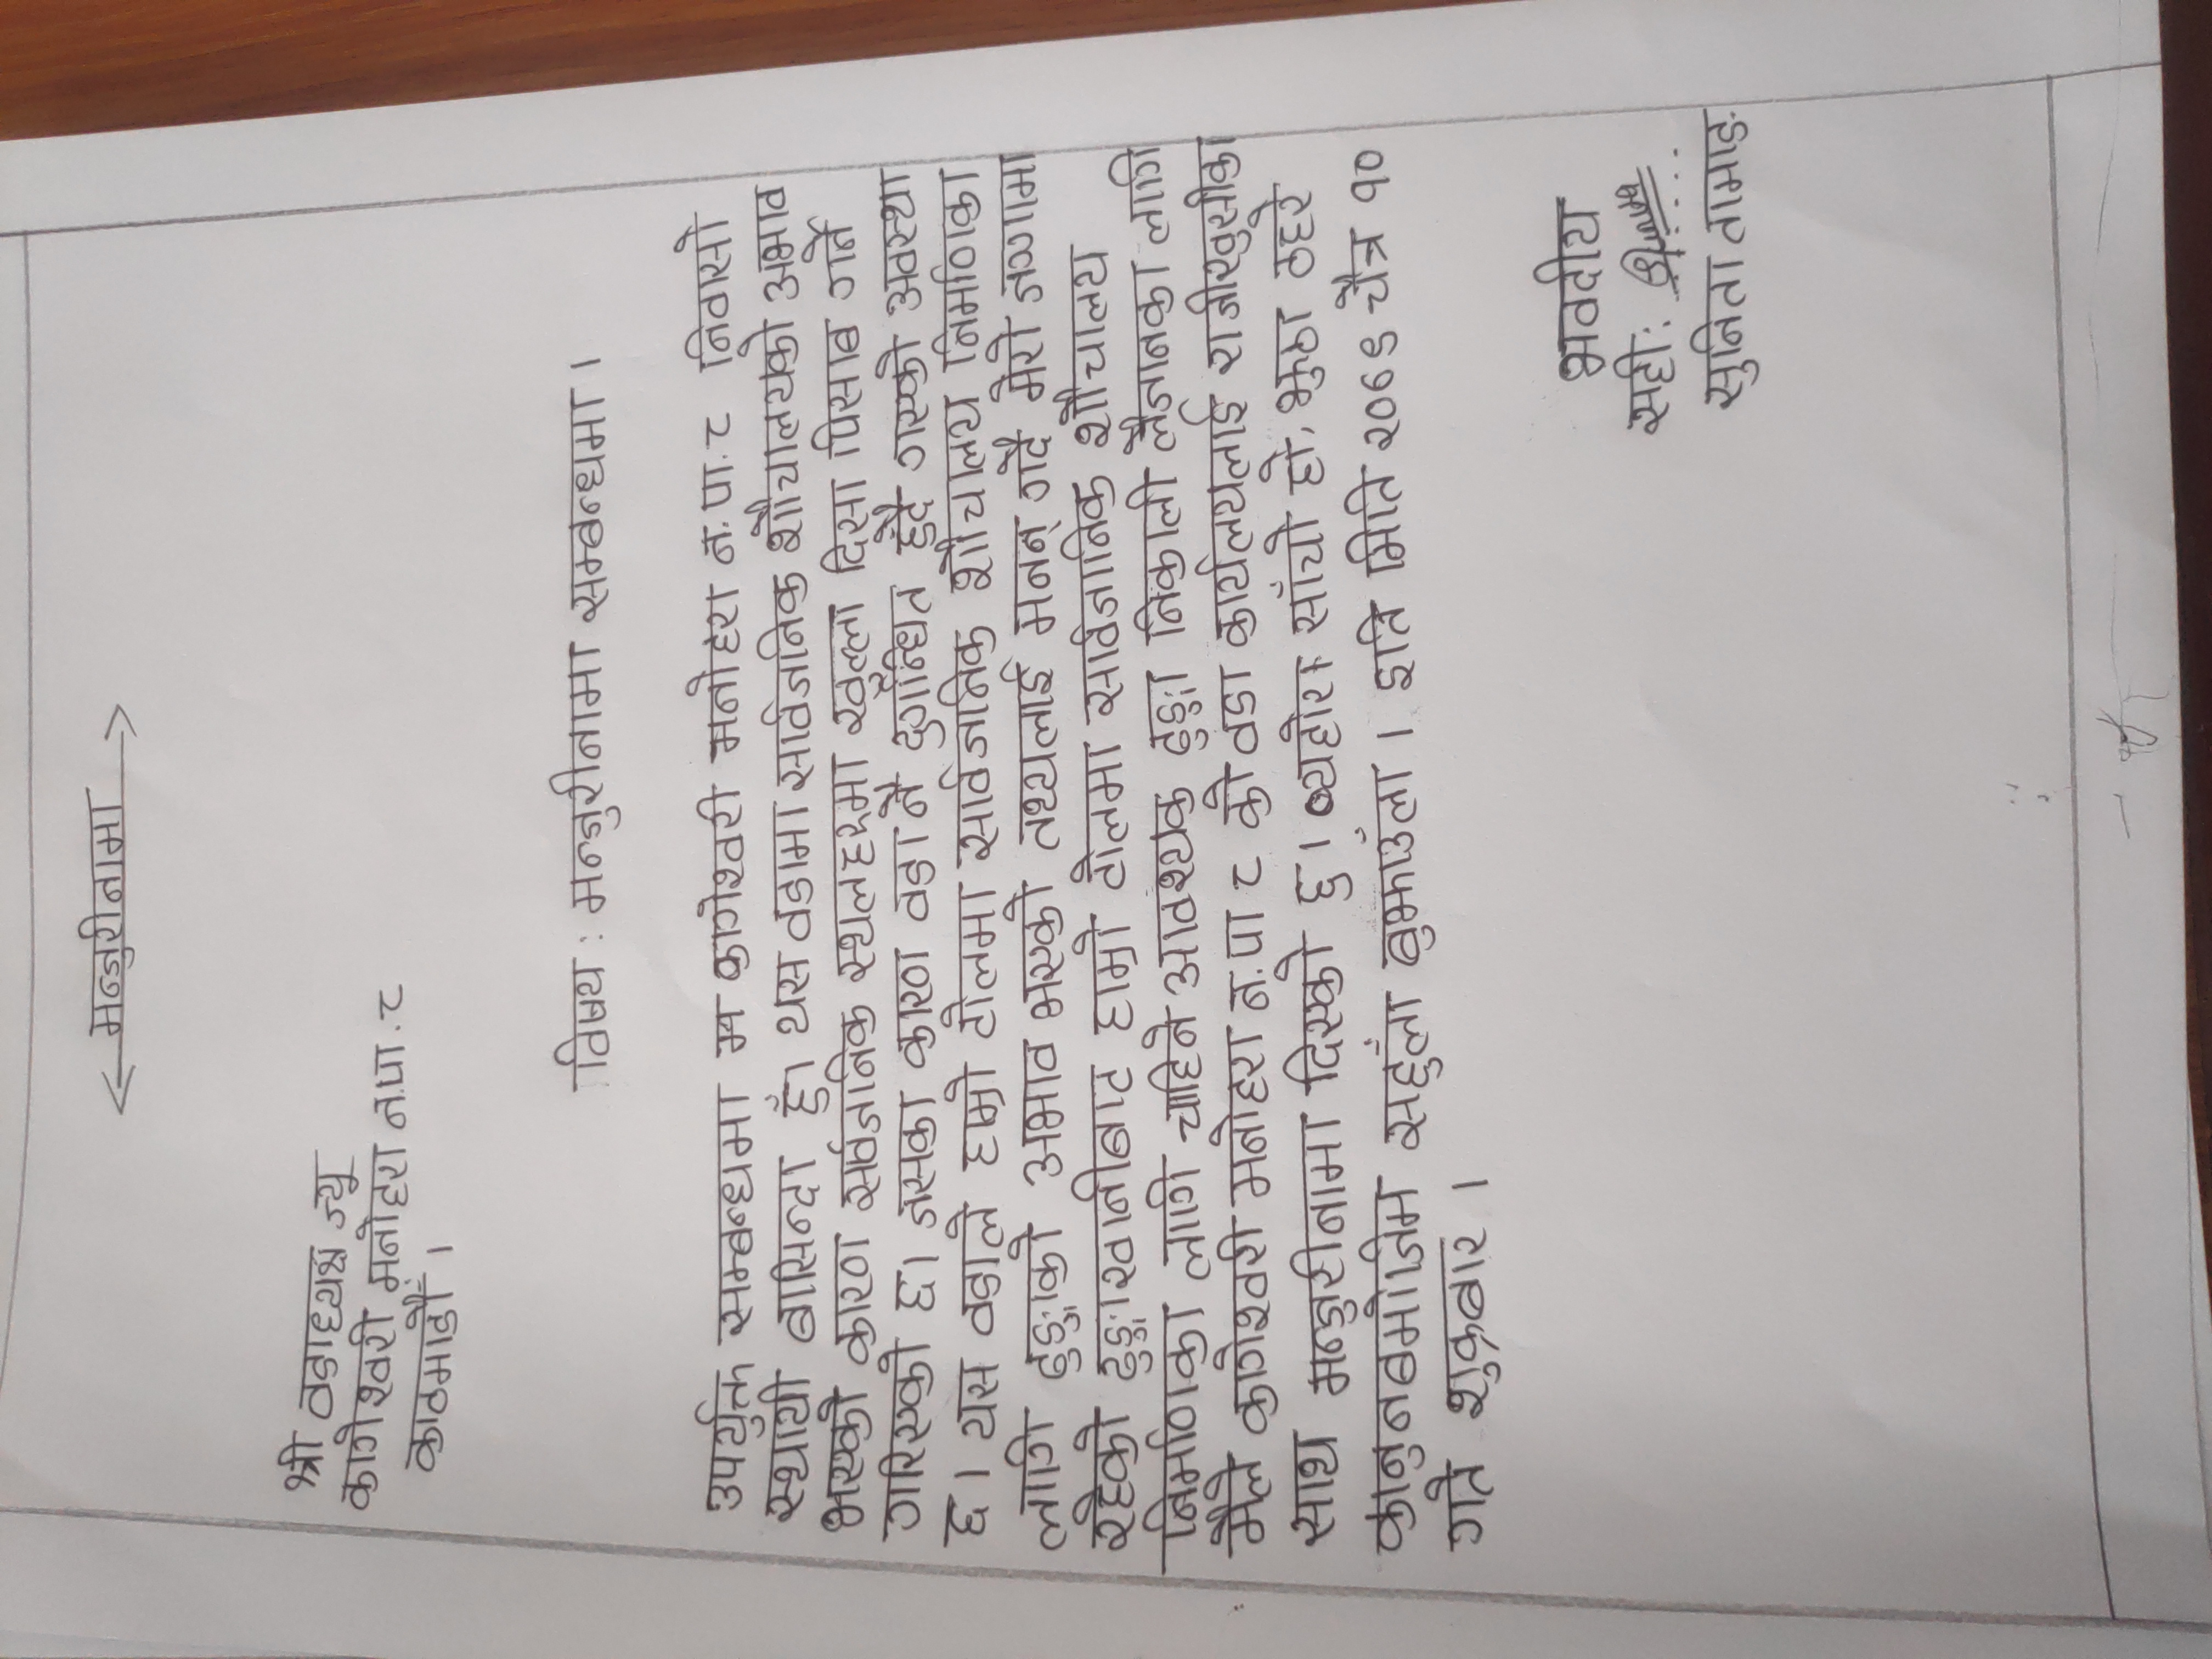 मन्जुरीनामा
श्री वडाध्यक्ष ज्यू
कागेश्वरी मनोहरा न.पा. ८
काठमाडौँ ।
विषय : मन्जुरीनामा सम्बन्धमा ।
उपर्युक्त सम्बन्धमा म कागेश्वरी मनोहरा न.पा. ८ निवासी
स्थायी बासिन्दा हुँ। यस वडामा सार्वजनिक शौचालयको अभाव
भएको कारण सर्वजनिक स्थलहरूमा खुल्ला दिसा पिसाब गर्ने
गरिएको छ। जसका कारण वडा नै दुर्गन्धित हुँदै गएको अवस्था
छ। यस वडाले हाम्रो टोलमा सार्वजनिक शौचालय निर्माणका
लागि ढुङ्गाको अभाव भएको तथ्यलाई मनन् गर्दै मेरो जग्गामा
रहेको ढुङ्गाखानीबाट हाम्रो टोलमा सार्वजनिक शौचालय
निर्माणका लागि चाहिने आवश्यक ढुङ्गा निकाली लैजानका लागि
मैले कागेश्वरी मनोहरा न.पा ८ को वडा कार्यलयलाई राजीखुसीका
साथ मन्जुरीनामा दिएको छु। व्यहोरा साँचो हो, झुठा ठहरे
कानुनबमोजिम सहुँला बुझाउँला । इति मिति २०७९ चैत्र १०
गते शुक्रबार ।
भवदीय
सही:
सुनिता तामाङ